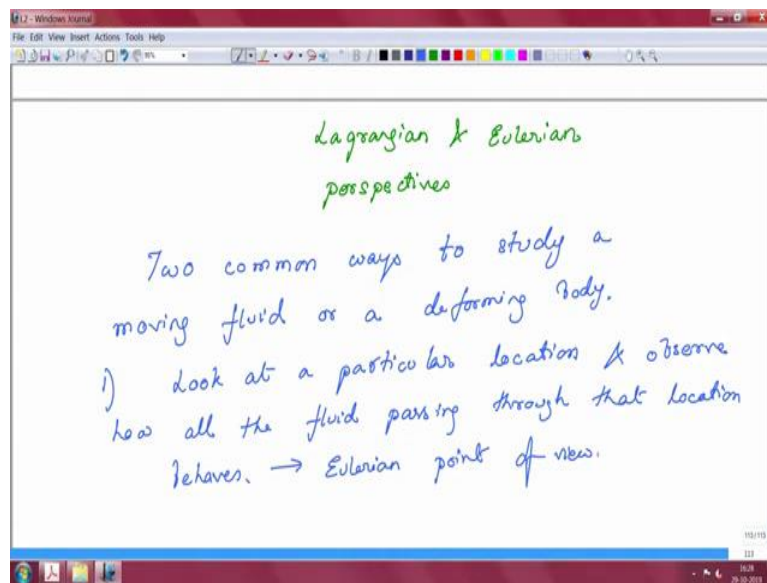 L2 - Windows Journal
File Edit View Insert Actions Tools Help
Lagrangian & Eulerian
perspectives
Two common ways to study a
moving fluid or a deforming body.
1) Look at a particular location & observe
how all the fluid passing through that location
behaves. → Eulerian point of view.
113/113
113
16:28
29-10-2015